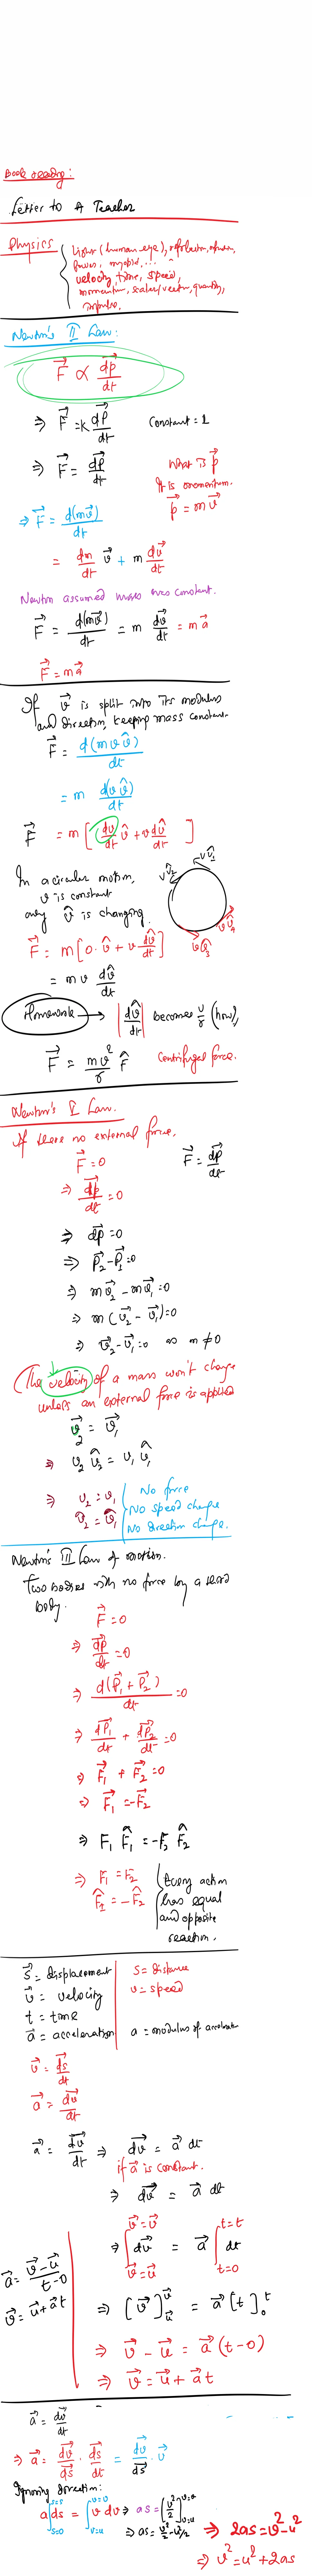 Book reading:
Letter to A Teacher
Physics
Light (human eye), refraction,
velocity, time, speed,
momentum, scalar/vector, quantity,
impulse.
Newton's II Law:
F⃗ ∝ dp⃗/dt
⇒ F⃗ = K dp⃗/dt Constant = 1
⇒ F⃗ = dp⃗/dt What is p⃗
It is momentum.
p⃗ = m v⃗
⇒ F⃗ = d(mv⃗)/dt
= dm/dt v⃗ + m dv⃗/dt
Newton assumed mass was constant.
F⃗ = d(mv⃗)/dt = m dv⃗/dt = m a⃗
F⃗ = m a⃗
If v⃗ is split into its modulus
and direction, keeping mass constant.
F⃗ = d(m v v̂)/dt
= m d(v v̂)/dt
F⃗ = m [ dv/dt v̂ + v dv̂/dt ]
In a circular motion,
v is constant
only v̂ is changing.
v v̂₁
v v̂₂
v v̂₃
v v̂₄
F⃗ = m[0. v̂ + v dv̂/dt]
= m v dv̂/dt
Homework → |dv̂/dt| becomes v/r (how),
F⃗ = mv²/r r̂ Centrifugal force.
Newton's I Law.
If there no external force,
F⃗ = 0 F⃗ = dp⃗/dt
⇒ dp⃗/dt = 0
⇒ dp⃗ = 0
⇒ p⃗₂ - p⃗₁ = 0
⇒ m v⃗₂ - m v⃗₁ = 0
⇒ m (v⃗₂ - v⃗₁) = 0
⇒ v⃗₂ - v⃗₁ = 0 as m ≠ 0
(The velocity of a mass won't change
unless an external force is applied
v⃗₂ = v⃗₁
⇒ v₂ v̂₂ = v₁ v̂₁
⇒ v₂ = v₁
v̂₂ = v̂₁
No force
No speed change
No direction change.
Newton's III Law of motion.
Two bodies with no force by a third
body.
F⃗ = 0
⇒ dp⃗/dt = 0
⇒ d(p⃗₁ + p⃗₂)/dt = 0
⇒ dp⃗₁/dt + dp⃗₂/dt = 0
⇒ F⃗₁ + F⃗₂ = 0
⇒ F⃗₁ = -F⃗₂
⇒ F₁ F̂₁ = -F₂ F̂₂
⇒ F₁ = F₂
F̂₂ = -F̂₂
Every action
has equal
and opposite
reaction.
s⃗ = displacement s = distance
v⃗ = velocity v = speed
t = time
a⃗ = acceleration a = modulus of acceleration
v⃗ = ds⃗/dt
a⃗ = dv⃗/dt
a⃗ = dv⃗/dt ⇒ dv⃗ = a⃗ dt
if a⃗ is constant.
⇒ dv⃗ = a⃗ dt
⇒ ∫ dv⃗ = a⃗ ∫ dt
v⃗=v⃗ t=t
v⃗=u⃗ t=0
⇒ [v⃗]ᵥ⃗ᵤ⃗ = a⃗ [t]ᵗ₀
⇒ v⃗ - u⃗ = a⃗ (t-0)
⇒ v⃗ = u⃗ + a⃗ t
a⃗ = v⃗-u⃗/t-0
v⃗ = u⃗ + a⃗t
a⃗ = dv⃗/dt
⇒ a⃗ = dv⃗/ds⃗ . ds⃗/dt = dv⃗/ds⃗ . v⃗
Ignoring direction:
a∫ds = ∫v dv ⇒ as = [v²/2]
s=s v=v v=v
s=0 v=u v=u
⇒ as = v²/2 - u²/2 ⇒ 2as = v²-u²
⇒ v² = u² + 2as